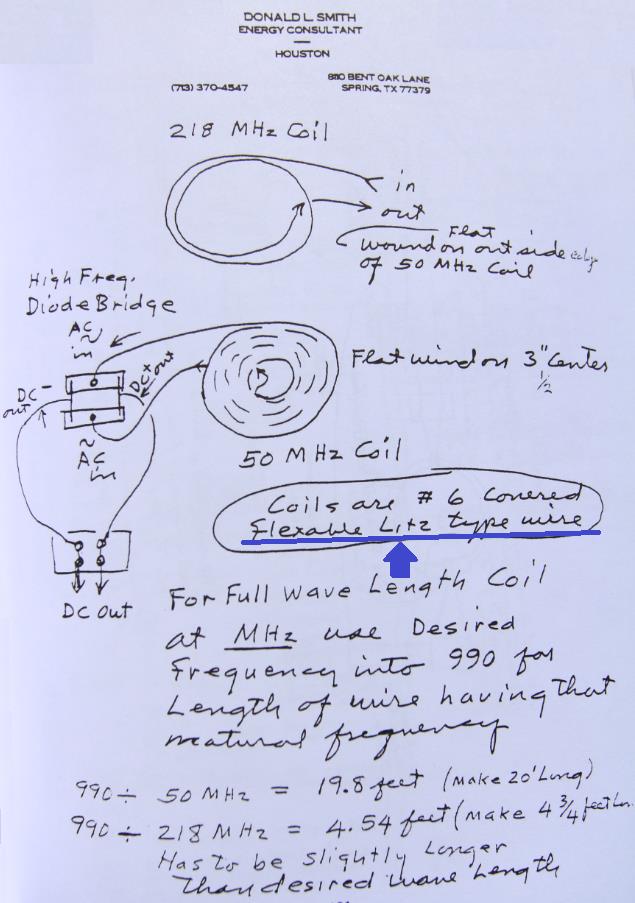 DONALD L. SMITH
ENERGY CONSULTANT
HOUSTON
(713) 370-4547
8110 BENT OAK LANE
SPRING, TX 77379
218 MHz Coil
in
out
Flat
wound on outside edge
of 50 MHz Coil
High Freq.
Diode Bridge
AC
~
in
DC+
out
DC-
out
~
AC
in
Flat wind on 3" Center
1/2
50 MHz Coil
Coils are # 6 Covered
flexable Litz type wire
DC Out
For Full Wave Length Coil
at MHz use Desired
Frequency into 990 for
Length of wire having that
natural frequency
990 ÷ 50 MHz = 19.8 feet (make 20' Long)
990 ÷ 218 MHz = 4.54 feet (make 4 3/4 feet Lon
Has to be slightly Longer
Than desired wave Length